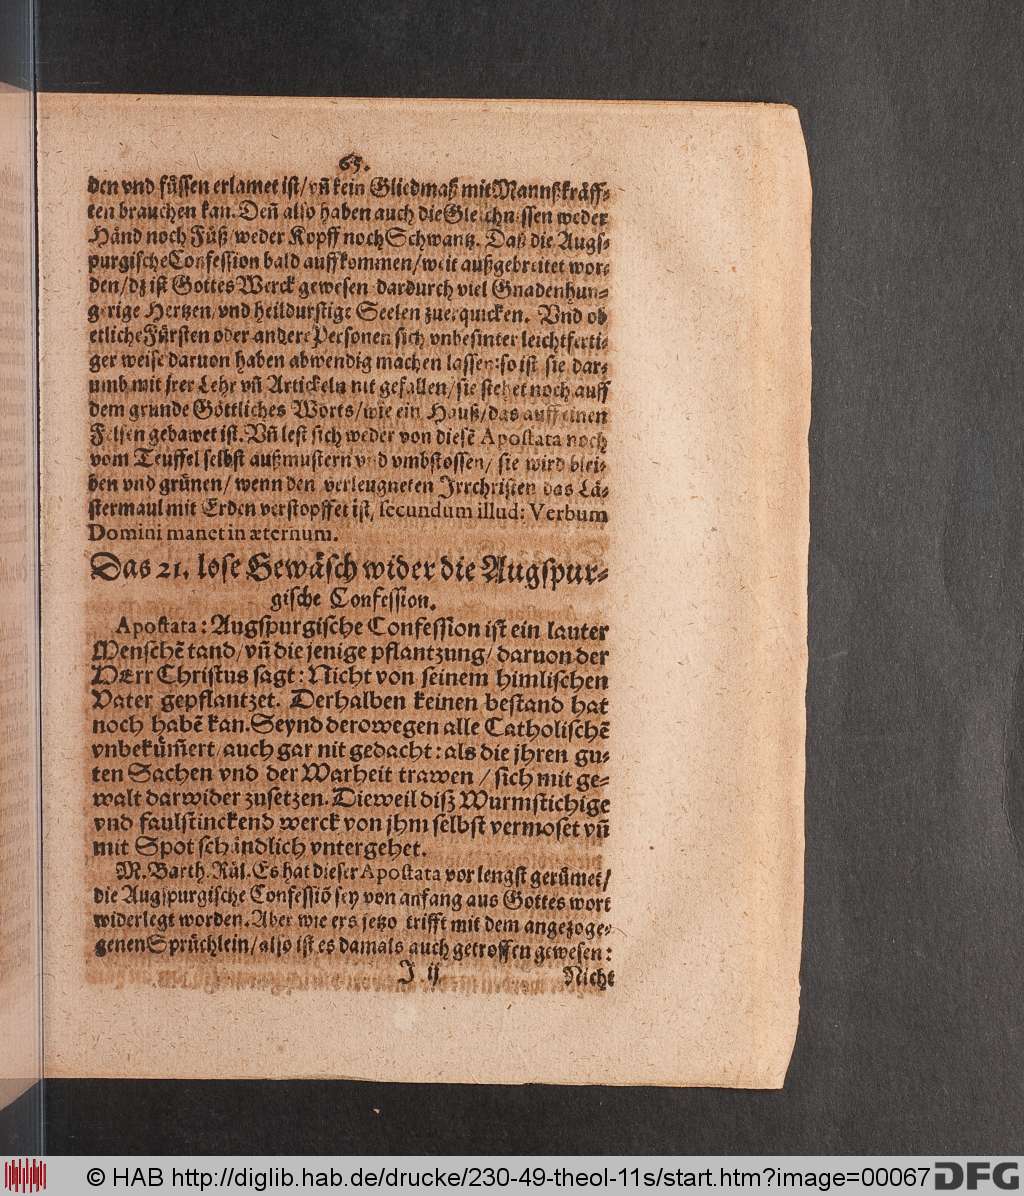 65.
den vnd füssen erlamet ist/ vñ kein Gliedmaß mit Mannßkräff-
ten brauchen kan. Deñ also haben auch die Gleichnissen weder
Händ noch Füß/ weder Kopff noch Schwantz. Daß die Augs-
purgische Confession bald auffkommen/ weit außgebreitet wor-
den/ dz ist Gottes Werck gewesen dardurch viel Gnadenhun-
gerige Hertzen/ vnd heildurstige Seelen zuerquicken. Vnd ob
etliche Fürsten oder andere Personen sich vnbesinter leichtferti-
ger weise daruon haben abwendig machen lassen: so ist sie dar-
umb mit jrer Lehr vñ Artickeln nit gefallen/ sie stehet noch auff
dem grunde Göttliches Worts/ wie ein Hauß/ das auff einen
Felsen gebawet ist. Vñ lest sich weder von diesẽ Apostata noch
vom Teuffel selbst außmustern vnd vmbstossen/ sie wird blei-
ben vnd grünen/ wenn den verleugneten Irrchristen das Lä-
stermaul mit Erden verstopffet ist, secundum illud: Verbum
Domini manet in æternum.
Das 21. lose Gewäsch wider die Augspur-
gische Confession.
Apostata: Augspurgische Confession ist ein lauter
Menschẽ tand/ vñ die jenige pflantzung/ daruon der
HErr Christus sagt: Nicht von seinem himlischen
Vater gepflantzet. Derhalben keinen bestand hat
noch habẽ kan. Seynd derowegen alle Catholischẽ
vnbekũmert/ auch gar nit gedacht: als die jhren gu-
ten Sachen vnd der Warheit trawen/ sich mit ge-
walt darwider zusetzen. Dieweil diß Wurmstichige
vnd faulstinckend werck von jhm selbst vermoset vñ
mit Spot schändlich vntergehet.
M. Barth. Räl. Es hat dieser Apostata vor lengst gerümet/
die Augspurgische Confessiõ sey von anfang aus Gottes wort
widerlegt worden. Aber wie ers jetzo trifft mit dem angezoge-
genen Sprüchlein/ also ist es damals auch getroffen gewesen:
I ij Nicht
© HAB http://diglib.hab.de/drucke/230-49-theol-11s/start.htm?image=00067 DFG